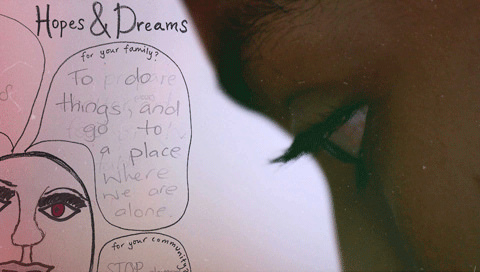 Hopes & Dreams
for your family?
To do
things, and
go to
a place
where
we are
alone.
for your community?
STOP